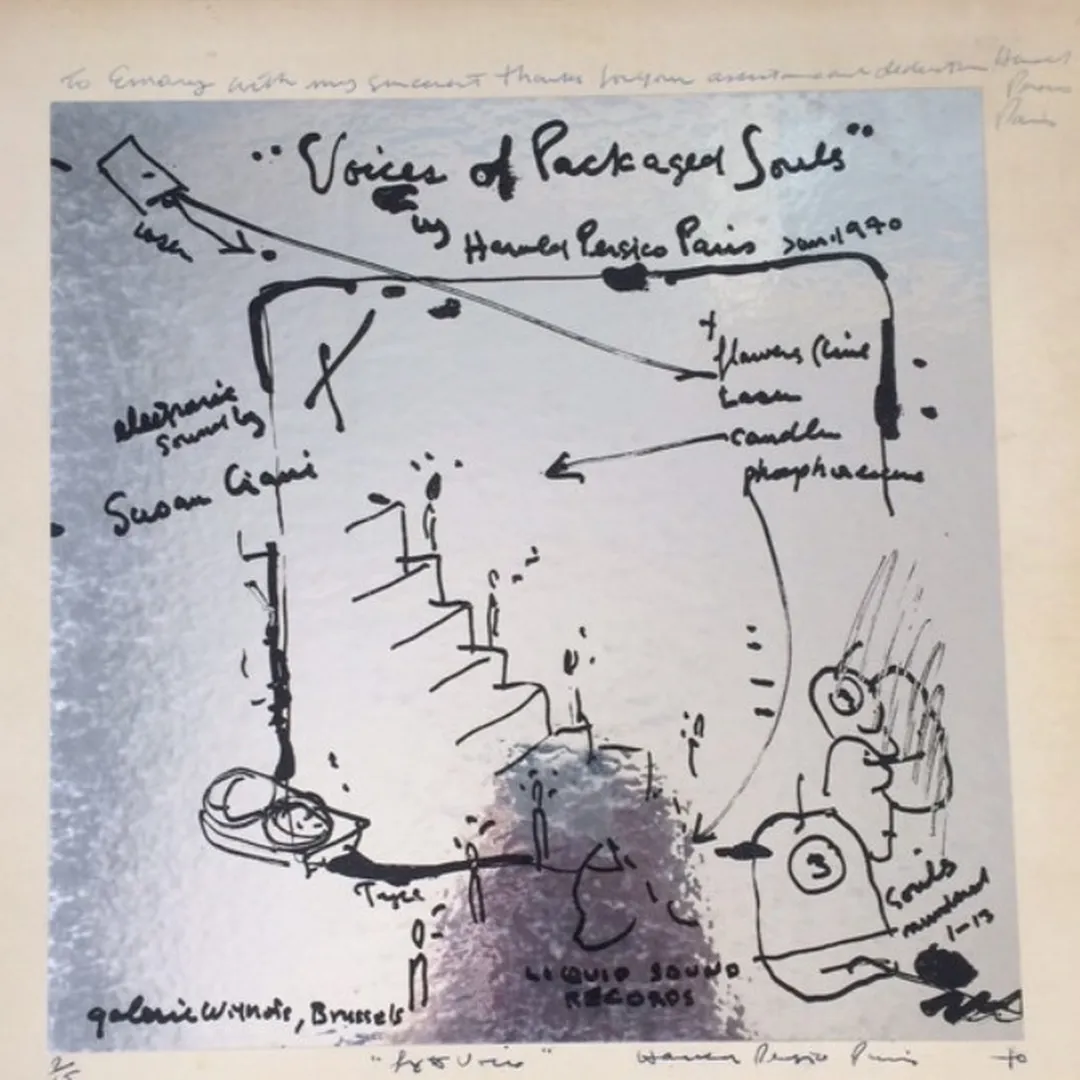 To Emary with my sincerest thanks for your assistance and dedication Harold
Persico
Paris
"Voices of Packaged Souls"
by Harold Persico Paris Jan. 1970
laser
+
flowers (line
Laser
candles
electronic
sound by
Susan Ciani
3
Souls
numbered
1-13
Tape
LIQUID SOUND
RECORDS
galerie Withofs, Brussels
Harold Persico Paris 70